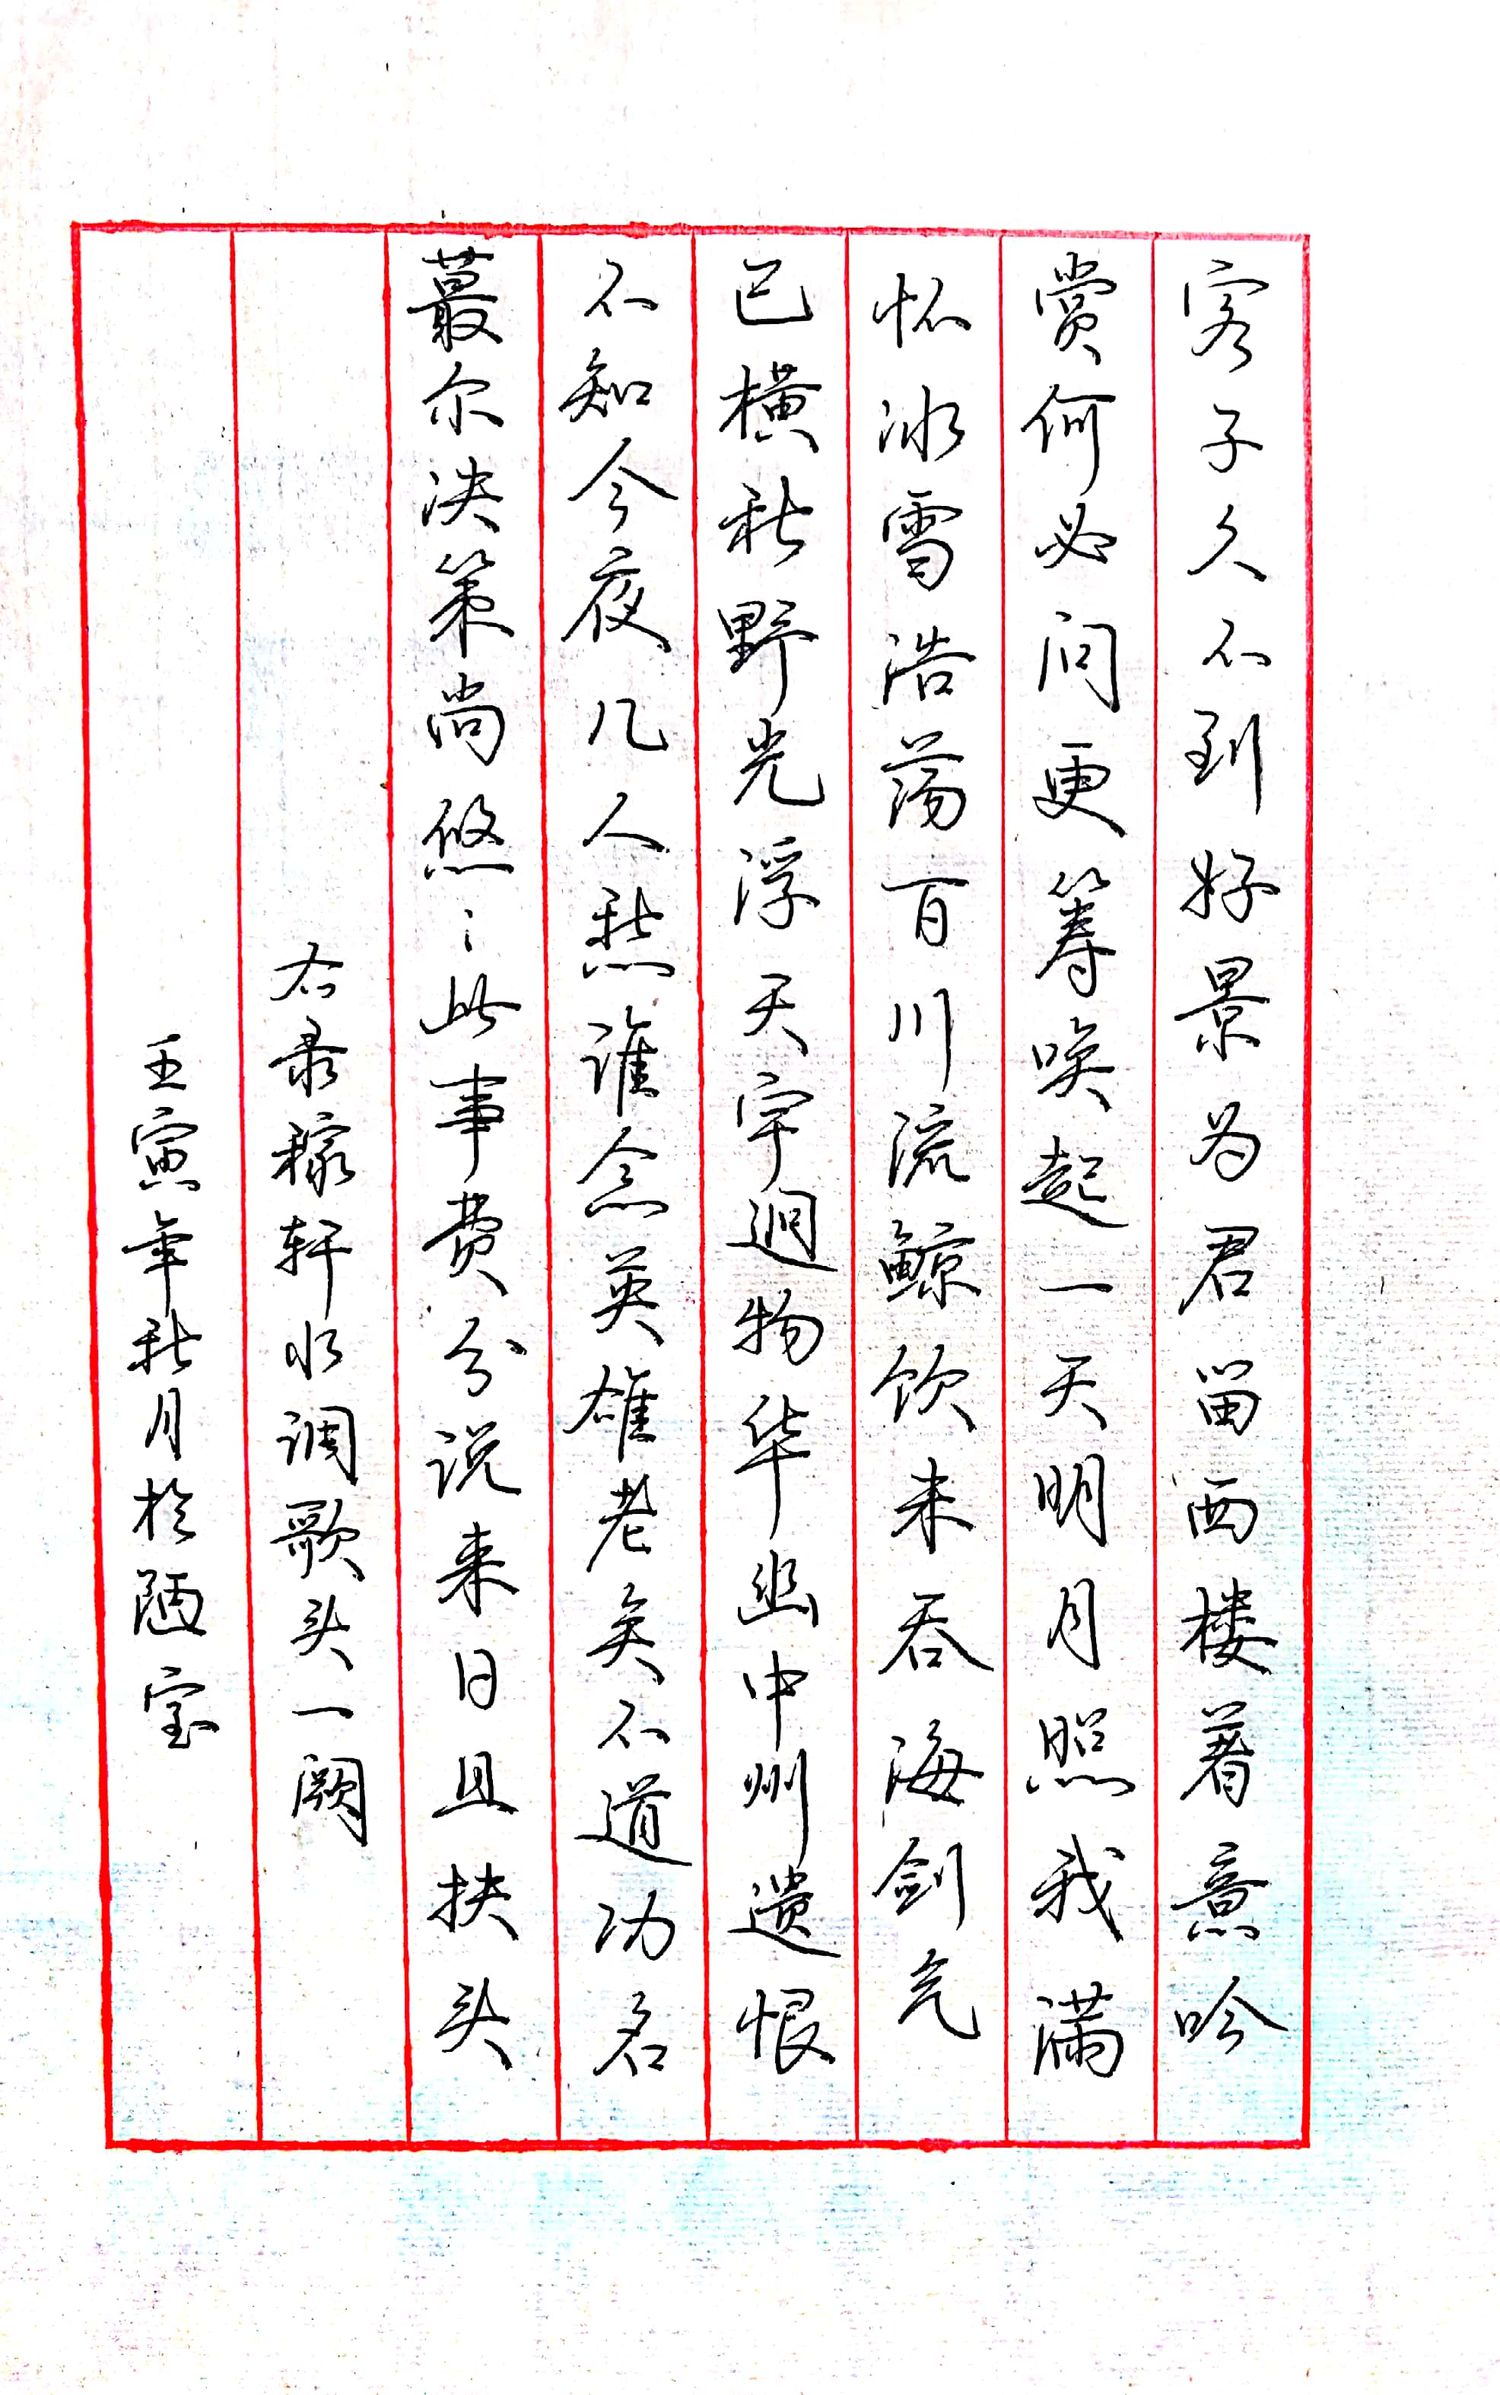 客子久不到好景为君留西楼著意吟
赏何必问更筹唤起一天明月照我满
怀冰雪浩荡百川流鲸饮未吞海剑气
已横秋野光浮天宇迥物华幽中州遗恨
不知今夜几人愁谁念英雄老矣不道功名
蕞尔决策尚悠〻此事费分说来日且扶头
右录稼轩水调歌头一阕
壬寅年秋月於陋室